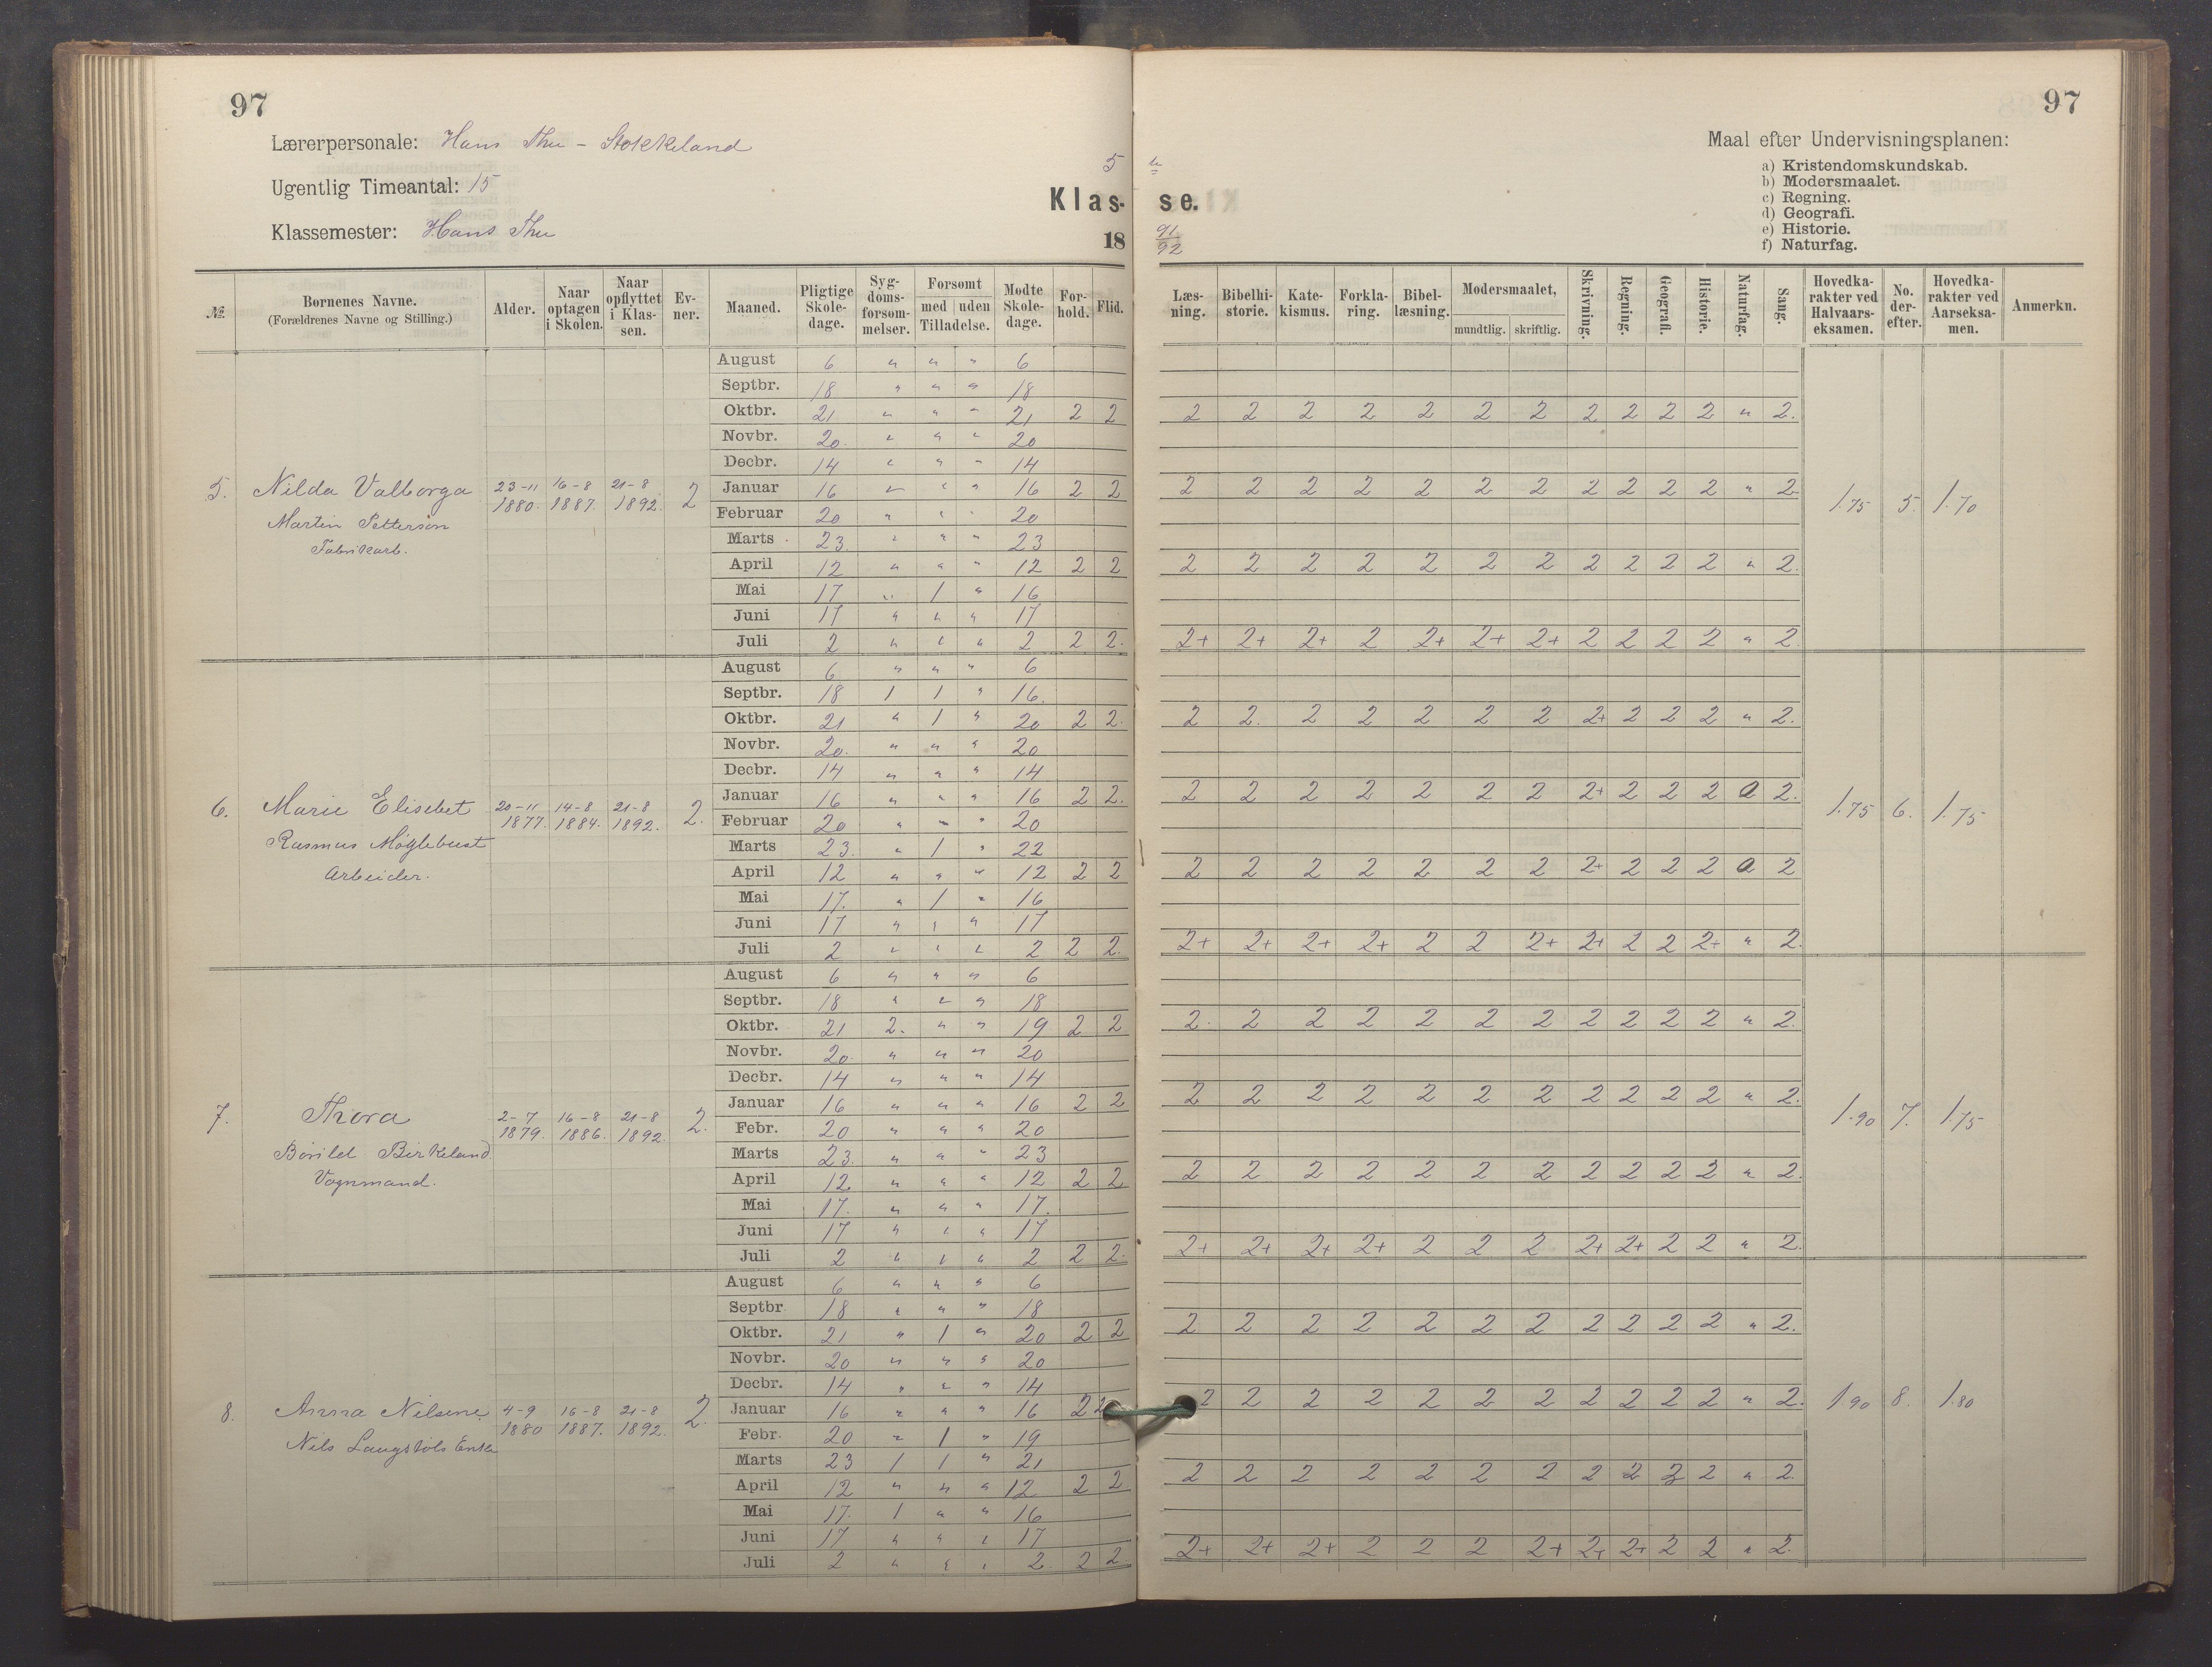 97
Lærerpersonale: Hans Thu - Stokkeland
Ugentlig Timeantal: 15
Klassemester: Hans Thu
5
Klas-
18
№
Børnenes Navne. (Forældrenes Navne og Stilling.)
Alder.
Naar optagen i Skolen.
Naar opflyttet i Klassen.
Evner.
Maaned.
Pligtige Skoledage.
Sygdomsforsømmelser.
Forsømt med uden Tilladelse.
Mødte Skoledage.
Forhold.
Flid.
August 6 " " " 6
Septbr. 18 " " " 18
Oktbr. 21 " " " 21 2 2
Novbr. 20. " " " 20
Decbr. 14 " " " 14
Januar 16 " " " 16 2 2
Februar 20 " " " 20
Marts 23. " " " 23
April 12 " " " 12 2 2
Mai 17 " 1 " 16
Juni 17 " " " 17
Juli 2 " " " 2 2 2.
5. Nilda Valborga 23-11 1880. 16-8 1887. 21-8 1892. 2
Martin Petterson
Fabrikarb.
August 6 " " " 6
Septbr. 18 1 1 " 16.
Oktbr. 21 " 1 " 20 2 2.
Novbr. 20. " " " 20
Decbr. 14 " " " 14
Januar 16 " " " 16 2 2.
Februar 20 " " " 20
Marts 23. " 1 " 22
April 12 " " " 12 2 2
Mai 17. " 1 " 16
Juni 17 " " " 17
Juli 2 " " " 2 2 2.
6. Marie Elisebet 20-11 1877. 14-8 1884. 21-8 1892. 2.
Rasmus Møglebust
Arbeider.
August 6 " " " 6
Septbr. 18 " " " 18
Oktbr. 21 2. " " 19 2 2
Novbr. 20. " " " 20
Decbr. 14 " " " 14
Januar 16 " " " 16 2 2
Febr. 20 " " " 20
Marts 23. " " " 23
April 12. " " " 12 2 2
Mai 17. " " " 17.
Juni 17 " " " 17
Juli 2 " " " 2 2 2.
7. Thora 2-7 1879. 16-8 1886. 21-8 1892. 2.
Børild Birkeland
Vognmand.
August 6 " " " 6
Septbr 18 " " " 18
Oktbr. 21 " 1 " 20 2 2
Novbr. 20 " " " 20
Decbr. 14 " " " 14
Januar 16 " " " 16 2 2
Febr. 20 " 1 " 19
Marts 23 1 1 " 21
April 12 " " " 12 2 2
Mai 17. 1 " " 16
Juni 17 " " " 17
Juli 2 " " " 2. 2 2
8. Anna Nilsine 4-9 1880 16-8 1887. 21-8 1892. 2.
Nils Enke
97
Maal efter Undervisningsplanen:
a) Kristendomskundskab.
b) Modersmaalet.
c) Regning.
d) Geografi.
e) Historie.
f) Naturfag.
te
se.
91
92
Læsning.
Bibelhistorie.
Katekismus.
Forklaring.
Bibellæsning.
Modersmaalet, mundtlig. skriftlig.
Skrivning.
Regning.
Geografi.
Historie.
Naturfag.
Sang.
Hovedkarakter ved Halvaarseksamen.
No. derefter.
Hovedkarakter ved Aarseksamen.
Anmerkn.
2 2 2 2 2 2 2 2 2 2 2 " 2.
2 2 2 2 2 2 2 2 2 2 2 " 2.
1.75 5. 1.70
2 2 2 2 2 2 2 2 2 2 2 " 2.
2+ 2+ 2+ 2 2+ 2+ 2+ 2 2 2 2 " 2
2 2. 2 2 2 2 2 2+ 2 2 2 " 2.
2 2 2 2 2 2 2 2+ 2 2 2 0 2.
1.75 6. 1.75
2 2 2 2 2 2 2 2+ 2 2 2 0 2
2+ 2+ 2+ 2+ 2 2 2+ 2+ 2 2 2+ " 2.
2. 2 2 2 2 2 2 2 2 2 2 " 2.
2 2 2 2 2 2 2 2 2 2 2 " 2.
1.90 7. 1.75
2 2 2 2 2 2 2 2 2 2 2 " 2.
2+ 2+ 2+ 2+ 2 2 2 2+ 2+ 2 2 " 2.
2 2 2 2 2 2 2 2 2 2 2 " 2.
2 2 2 2 2 2 2 2 2 2 2 " 2.
1.90 8. 1.80
2 2 2 2 2 2 2 2 2 2 2 " 2.
2+ 2+ 2+ 2 2 2 2+ 2+ 2+ 2 2 " 2.